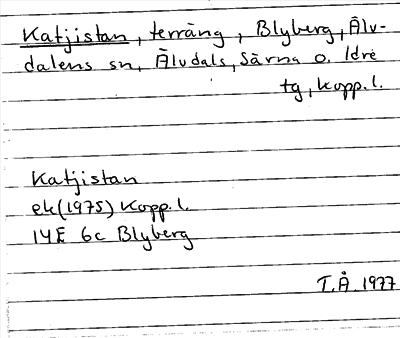 Katjistan, terräng, Blyberg, Älv-
dalens sn, Älvdals, Särna o. Idre
tg, Kopp.l.
Katjistan
ek(1975) Kopp.l.
14E 6c Blyberg
T.Å 1977